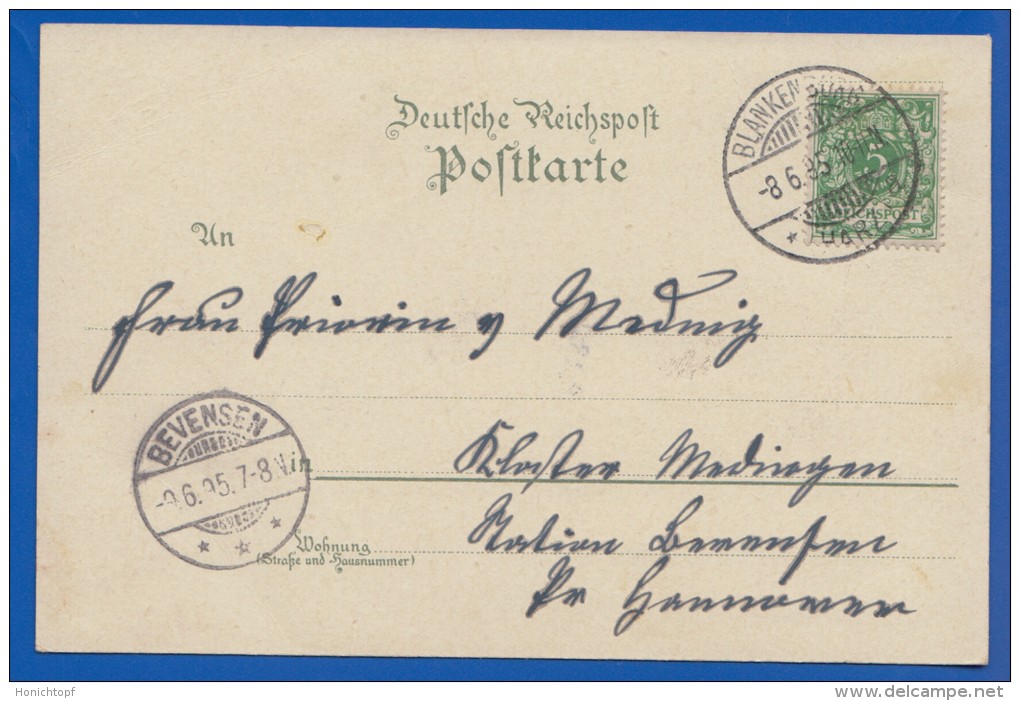 Deutsche Reichspost
Postkarte
BLANKENBURG
-8 6.95
* HARZ
5
REICHSPOST
An
Frau Priorin v Meding
BEVENSEN
-9.6.95.7-8N.
in
Kloster Medingen
Station Bevensen
Pr Hannover
Wohnung
(Straße und Hausnummer)
Honichtopf
www.delcampe.net